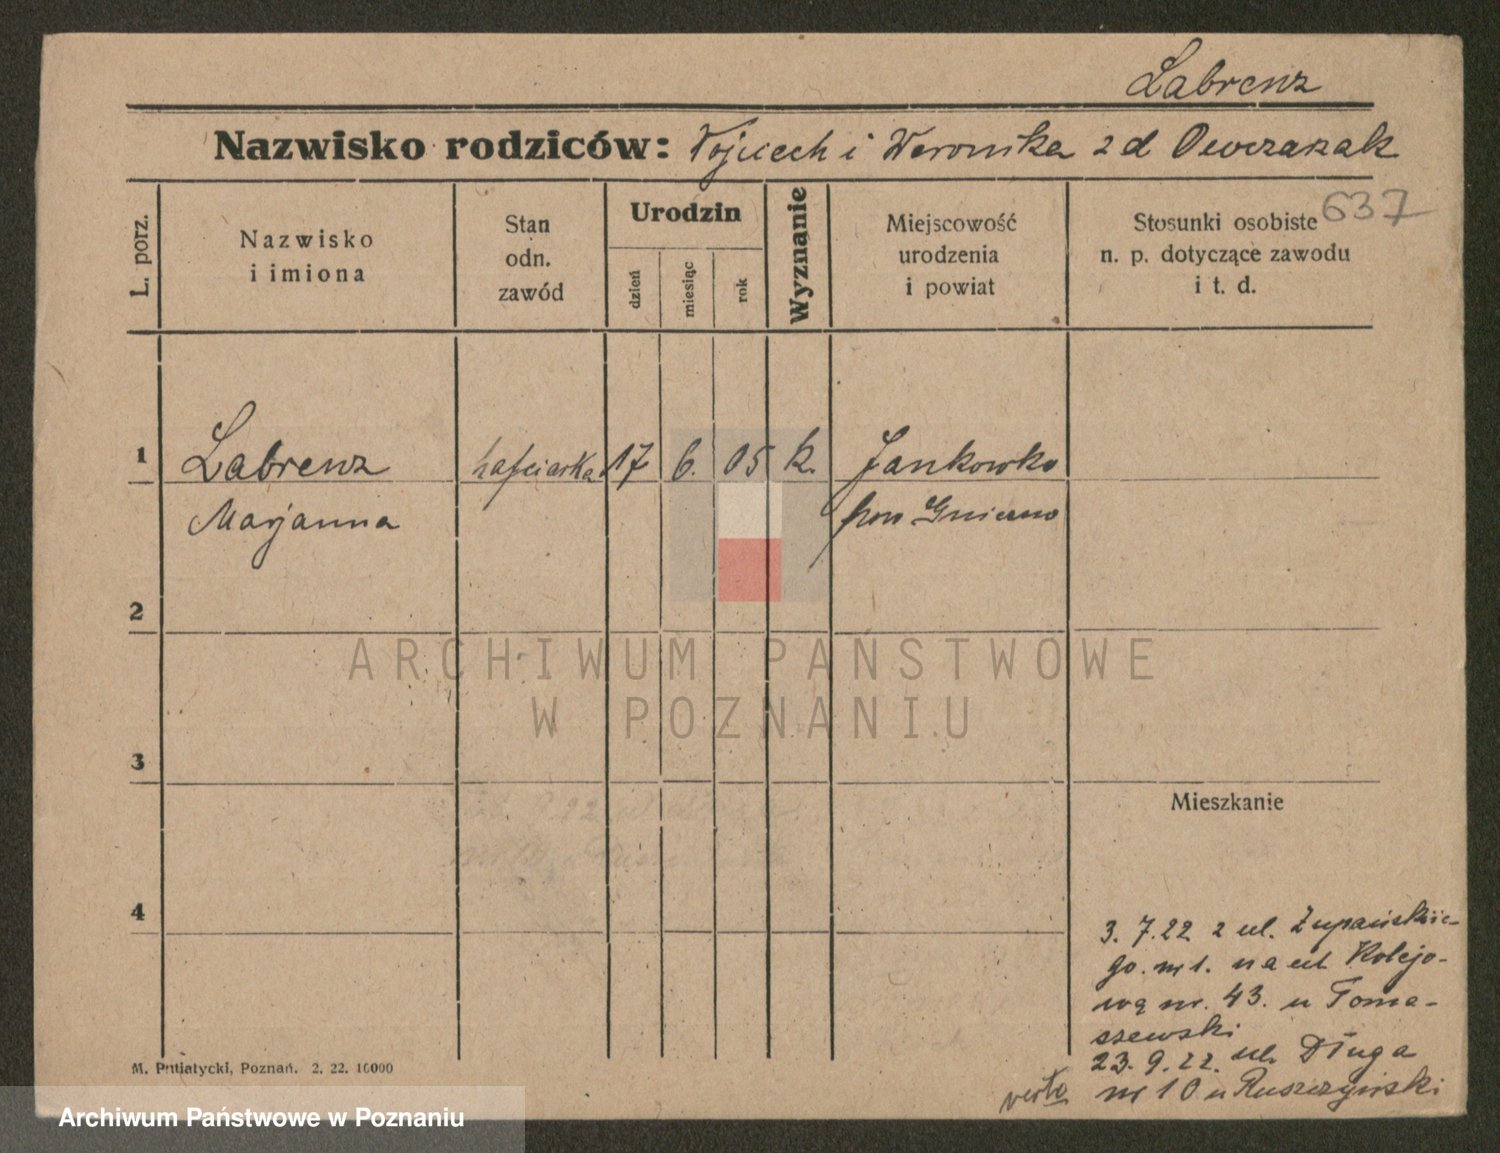 Labrenz
Nazwisko rodziców: Wojciech i Weronika z d Owczarzak
637
L. porz.
Nazwisko
i imiona
Stan
odn.
zawód
Urodzin
dzień
miesiąc
rok
Wyznanie
Miejscowość
urodzenia
i powiat
Stosunki osobiste
n. p. dotyczące zawodu
i t. d.
1 Labrenz hafciarka 17 6. 05 k. Jankowko
Marjanna pow Gniezno
2
ARCHIWUM PAŃSTWOWE
W POZNANIU
3
Mieszkanie
4
3. 7.22 z ul. Żupańskie-
go. nr 1. na ul. Kolejo-
wą nr. 43. u Toma-
szewski
23. 9. 22. ul. Długa
verte nr 10 u Ruszczyński
M. Putiatycki, Poznań. 2. 22. 10000
Archiwum Państwowe w Poznaniu